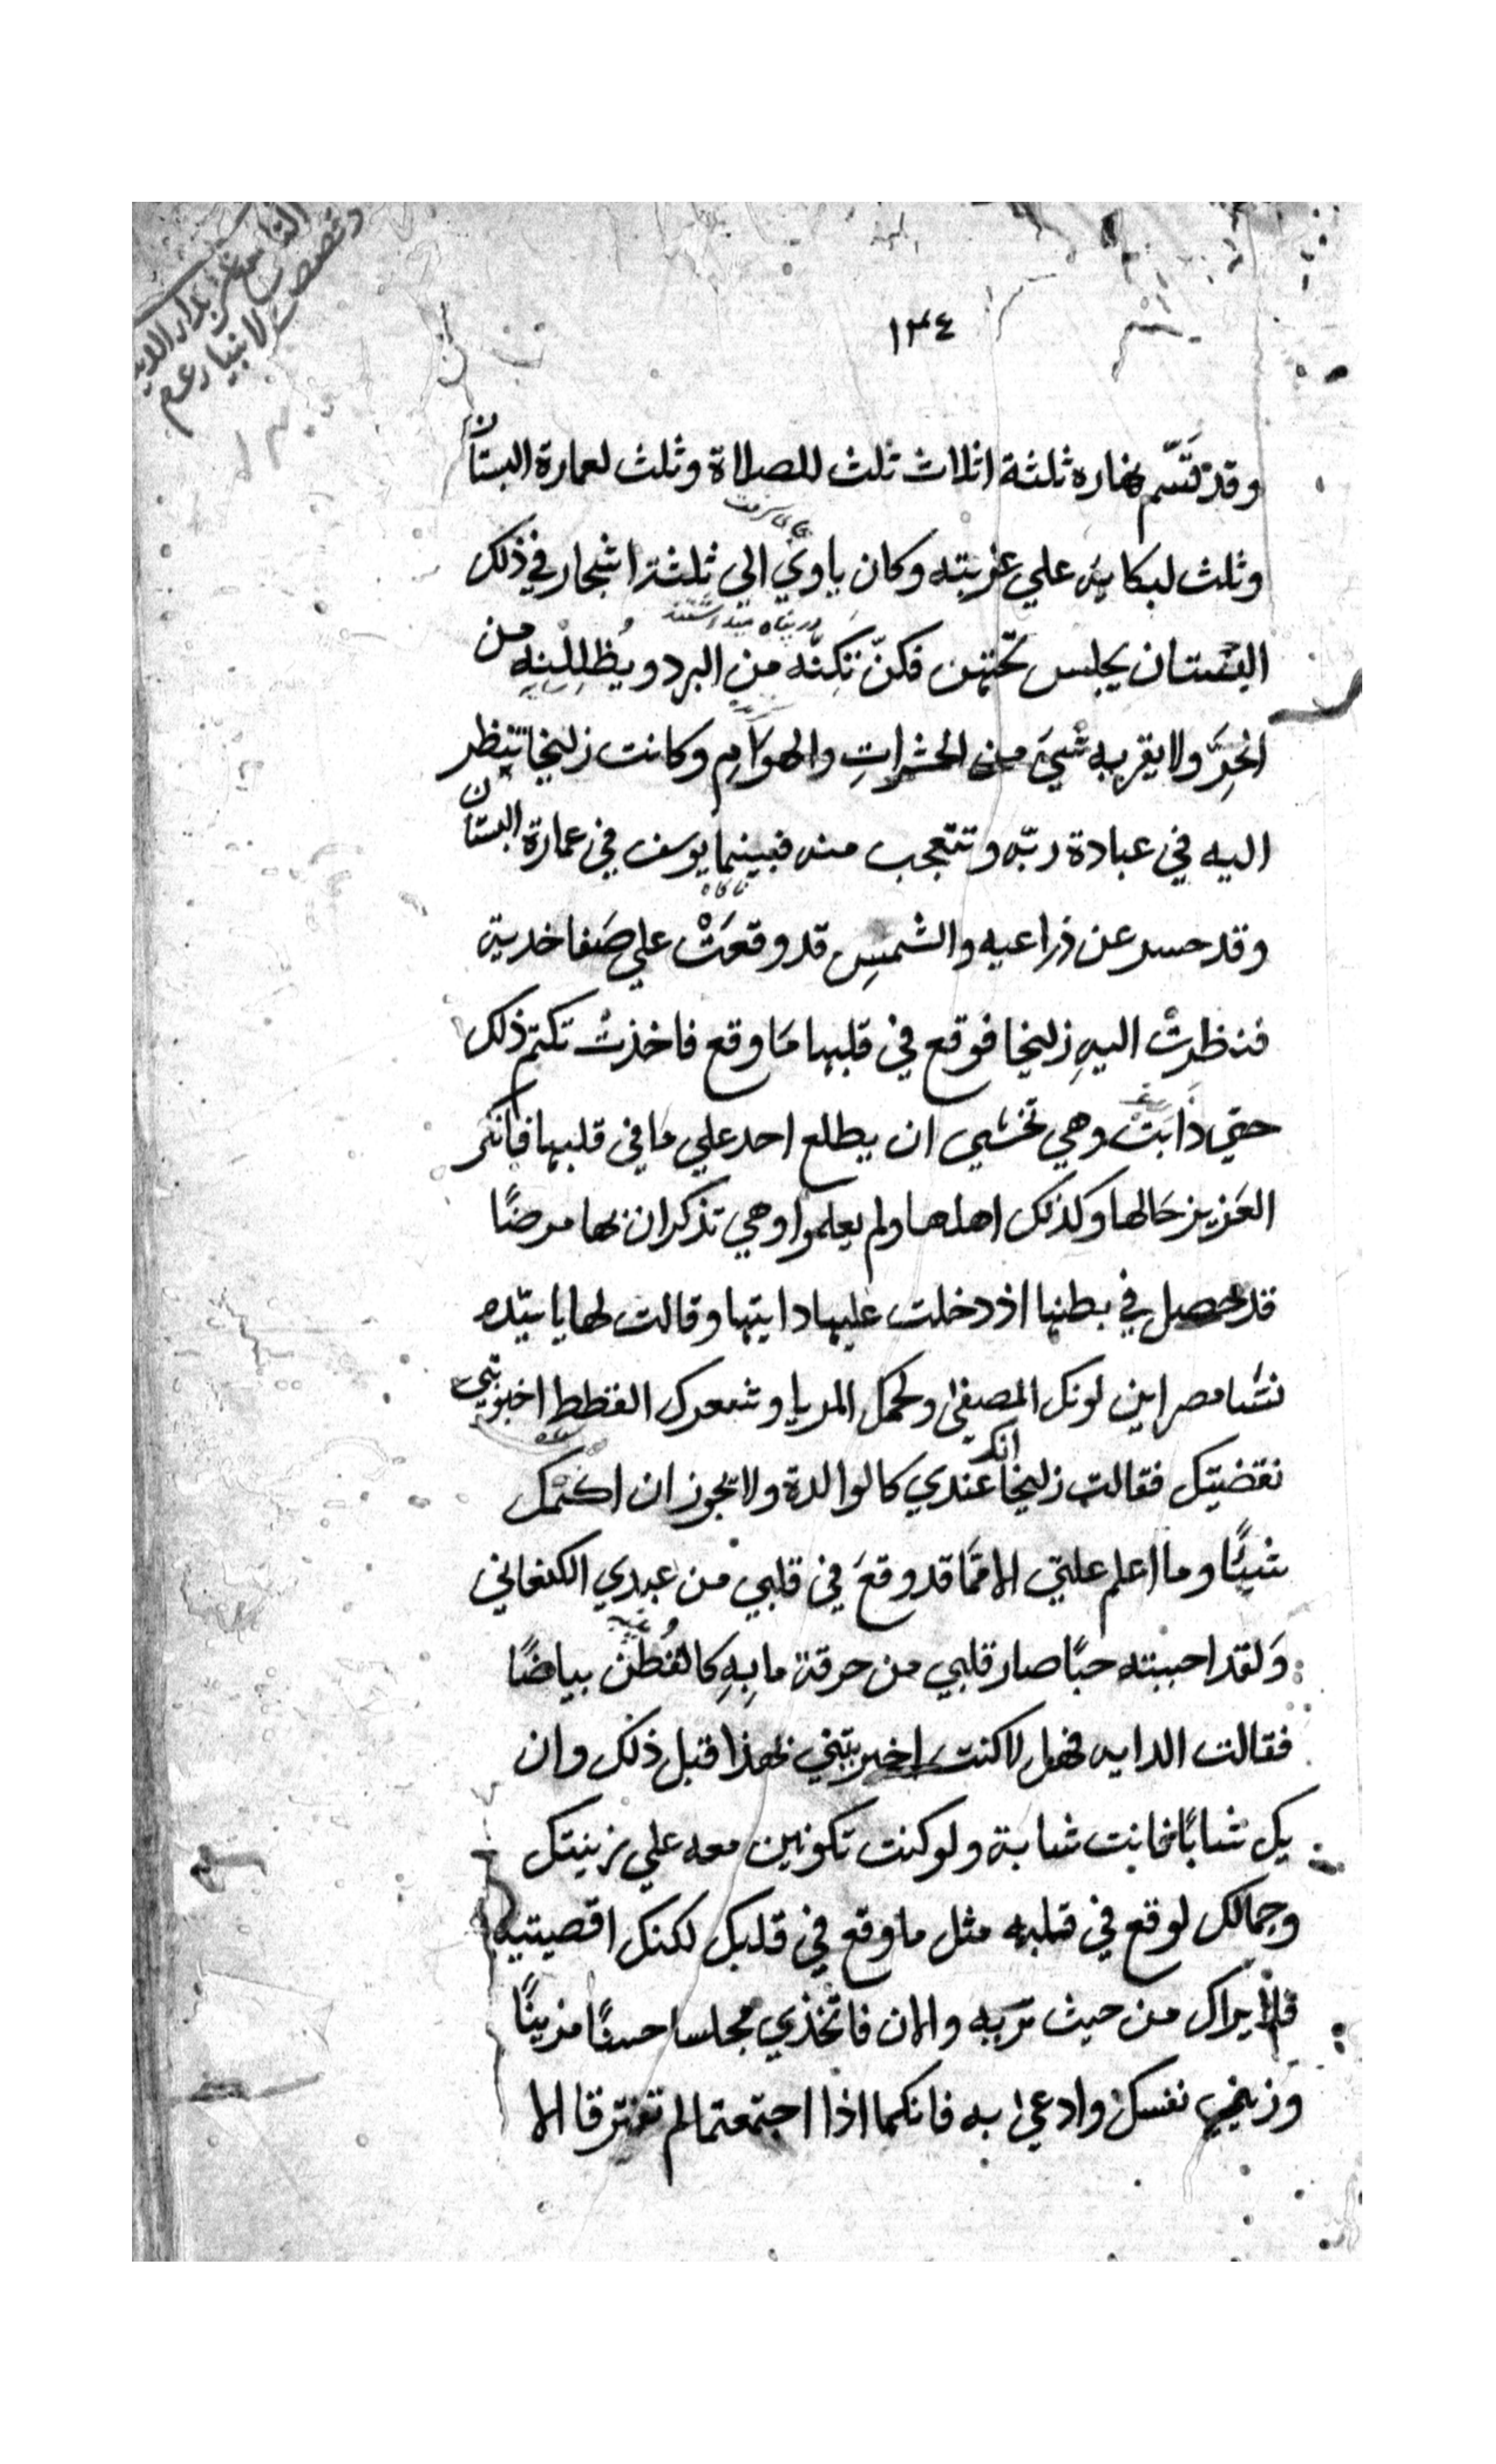 ١٣٤
وقد قَسَّم نهاره ثلثة اثلاث ثلث للصلاة وثلث لعمارة البستان
وثلث لبكايه علي غربته وكان ياوي الي ثلثة اشجار في ذلك
البستان يجلس تحتهن فكنّ تكنّه من البرد ويُظلِلْنه من
الحرِّ ولا يقربه شيء من الحشراتِ والهوَامِ وكانت زليخا تنظر
اليه في عبادة ربّه وتتعجب منه فبينما يوسف في عمارة البستان
وقد حسر عن ذراعيه والشمسِ قد وقعَتْ علي صَفا خديه
فنظرتْ اليهِ زليخا فوقع في قلبها مَا وقع فاخذتْ تكتم ذلك
حتي ذَابَتْ وهي تخشي ان يطلع احد علي مَا في قلبها فانكر
العَزيز حَالها وكذلك اهلها ولم يعلموا وهي تذكر ان بها مرضًا
قد حصل في بطنها اذ دخلت عليها دايتها وقالت لها يا سيّده
نسَا مصر اين لونك المصفي ولحمك الريا وشعرك القطط اخبرتني
نقضيتك فقالت زليخا انك عندي كالوالدة ولا تجوز ان اكتمك
شيئًا وما اعلم علتي الا ممّا قد وقعَ في قلبي من عبدي الكنعاني
وَلقد احببته حبًا صار قلبي من حرقة ما بِهِ كالقُطن بياضًا
فقالت الدايه فهل لا كنت اخبرتيني بهذا قبل ذلك وان
يك شابًا فانت شابة ولو كنت تكونين معه علي زينتك
وجمالك لوقع في قلبه مثل ما وقع في قلبك لكنك اقصيتيه
فلا يراك من حيث تريه والان فاتخذي مجلسا حسنًا مزينًا
وزيني نفسك وادعي به فانكما اذا اجتمعتما لم تفترقا الا